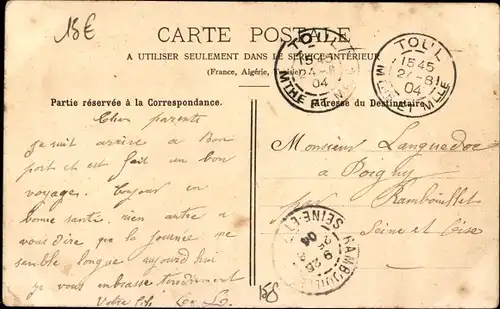 15€
CARTE POSTALE
A UTILISER SEULEMENT DANS LE SERVICE INTÉRIEUR
(France, Algérie, Tunisie)
TOUL
1545
24-8
04
MTHE
TOUL
1545
24-8
04
MTHE ET MLLE
Partie réservée à la Correspondance.
Adresse du Destinataire.
Cher parents
je suit arrive a Bon
port et et fait un bon
voyage. Toujour en
bonne sante. rien autre a
vous dire que la journée me
semble longue aujourd'hui
je vous embrasse tendrement
Votre fils
Monsieur Languedoc
a Poigny
par Rambouillet
Seine et Oise
RAMBOUILLET
SEINE-ET
04
15€